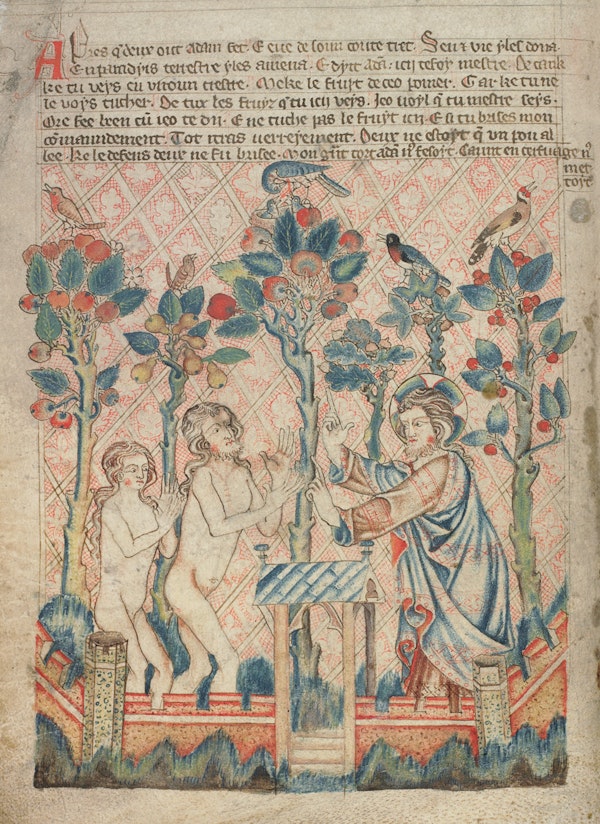 Apres q̃ deux out adam fet. E eve de soun coute tret. Sen & vie yles dona.
En paradyis terestre yles amena. E dyt adã: icy te soy mestre. De cank
ke tu veys cu vitoun trestre. Meke le fruyt de ceo pomer. Gar ke tu ne
le voys tucher. De tux les fruyz q̃ tu icy veys. Jeo voyl q̃ tu mestre seys.
Ore fee been cũ ieo te di: E ne tuche pas le fruyt icy. E si tu brises mon
cõmaundement. Tot irras verreyement. Deux ne estoyt q̃ un pou al
lee. Ke le defens deux ne fu brisee. Mõn g̃nt tort adã nº fesoyt. Caunt en cerfuage nº
met
toyt.